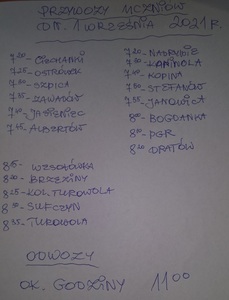 PRZYWOZY UCZNIÓW
DN. 1 WRZEŚNIA 2021 r.
7 20 - CIECHANKI
7 25 - OSTRÓWEK
7 30 - SZPICA
7 35 - ZAWADÓW
7 40 - JASIENIEC
7 45 - ALBERTÓW
7 20 - NADRYBIE
7 30 - KANIWOLA
7 40 - KOPINA
7 50 - STEFANÓW
7 55 - JANOWICA
8 00 - BOGDANKA
8 20 - PGR
8 20 DRATÓW
8 15 - WESOŁÓWKA
8 20 - BRZEZINY
8 25 - KOL. TUROWOLA
8 30 - SUFCZYN
8 35 - TUROWOLA
ODWOZY
OK. GODZINY 11 00